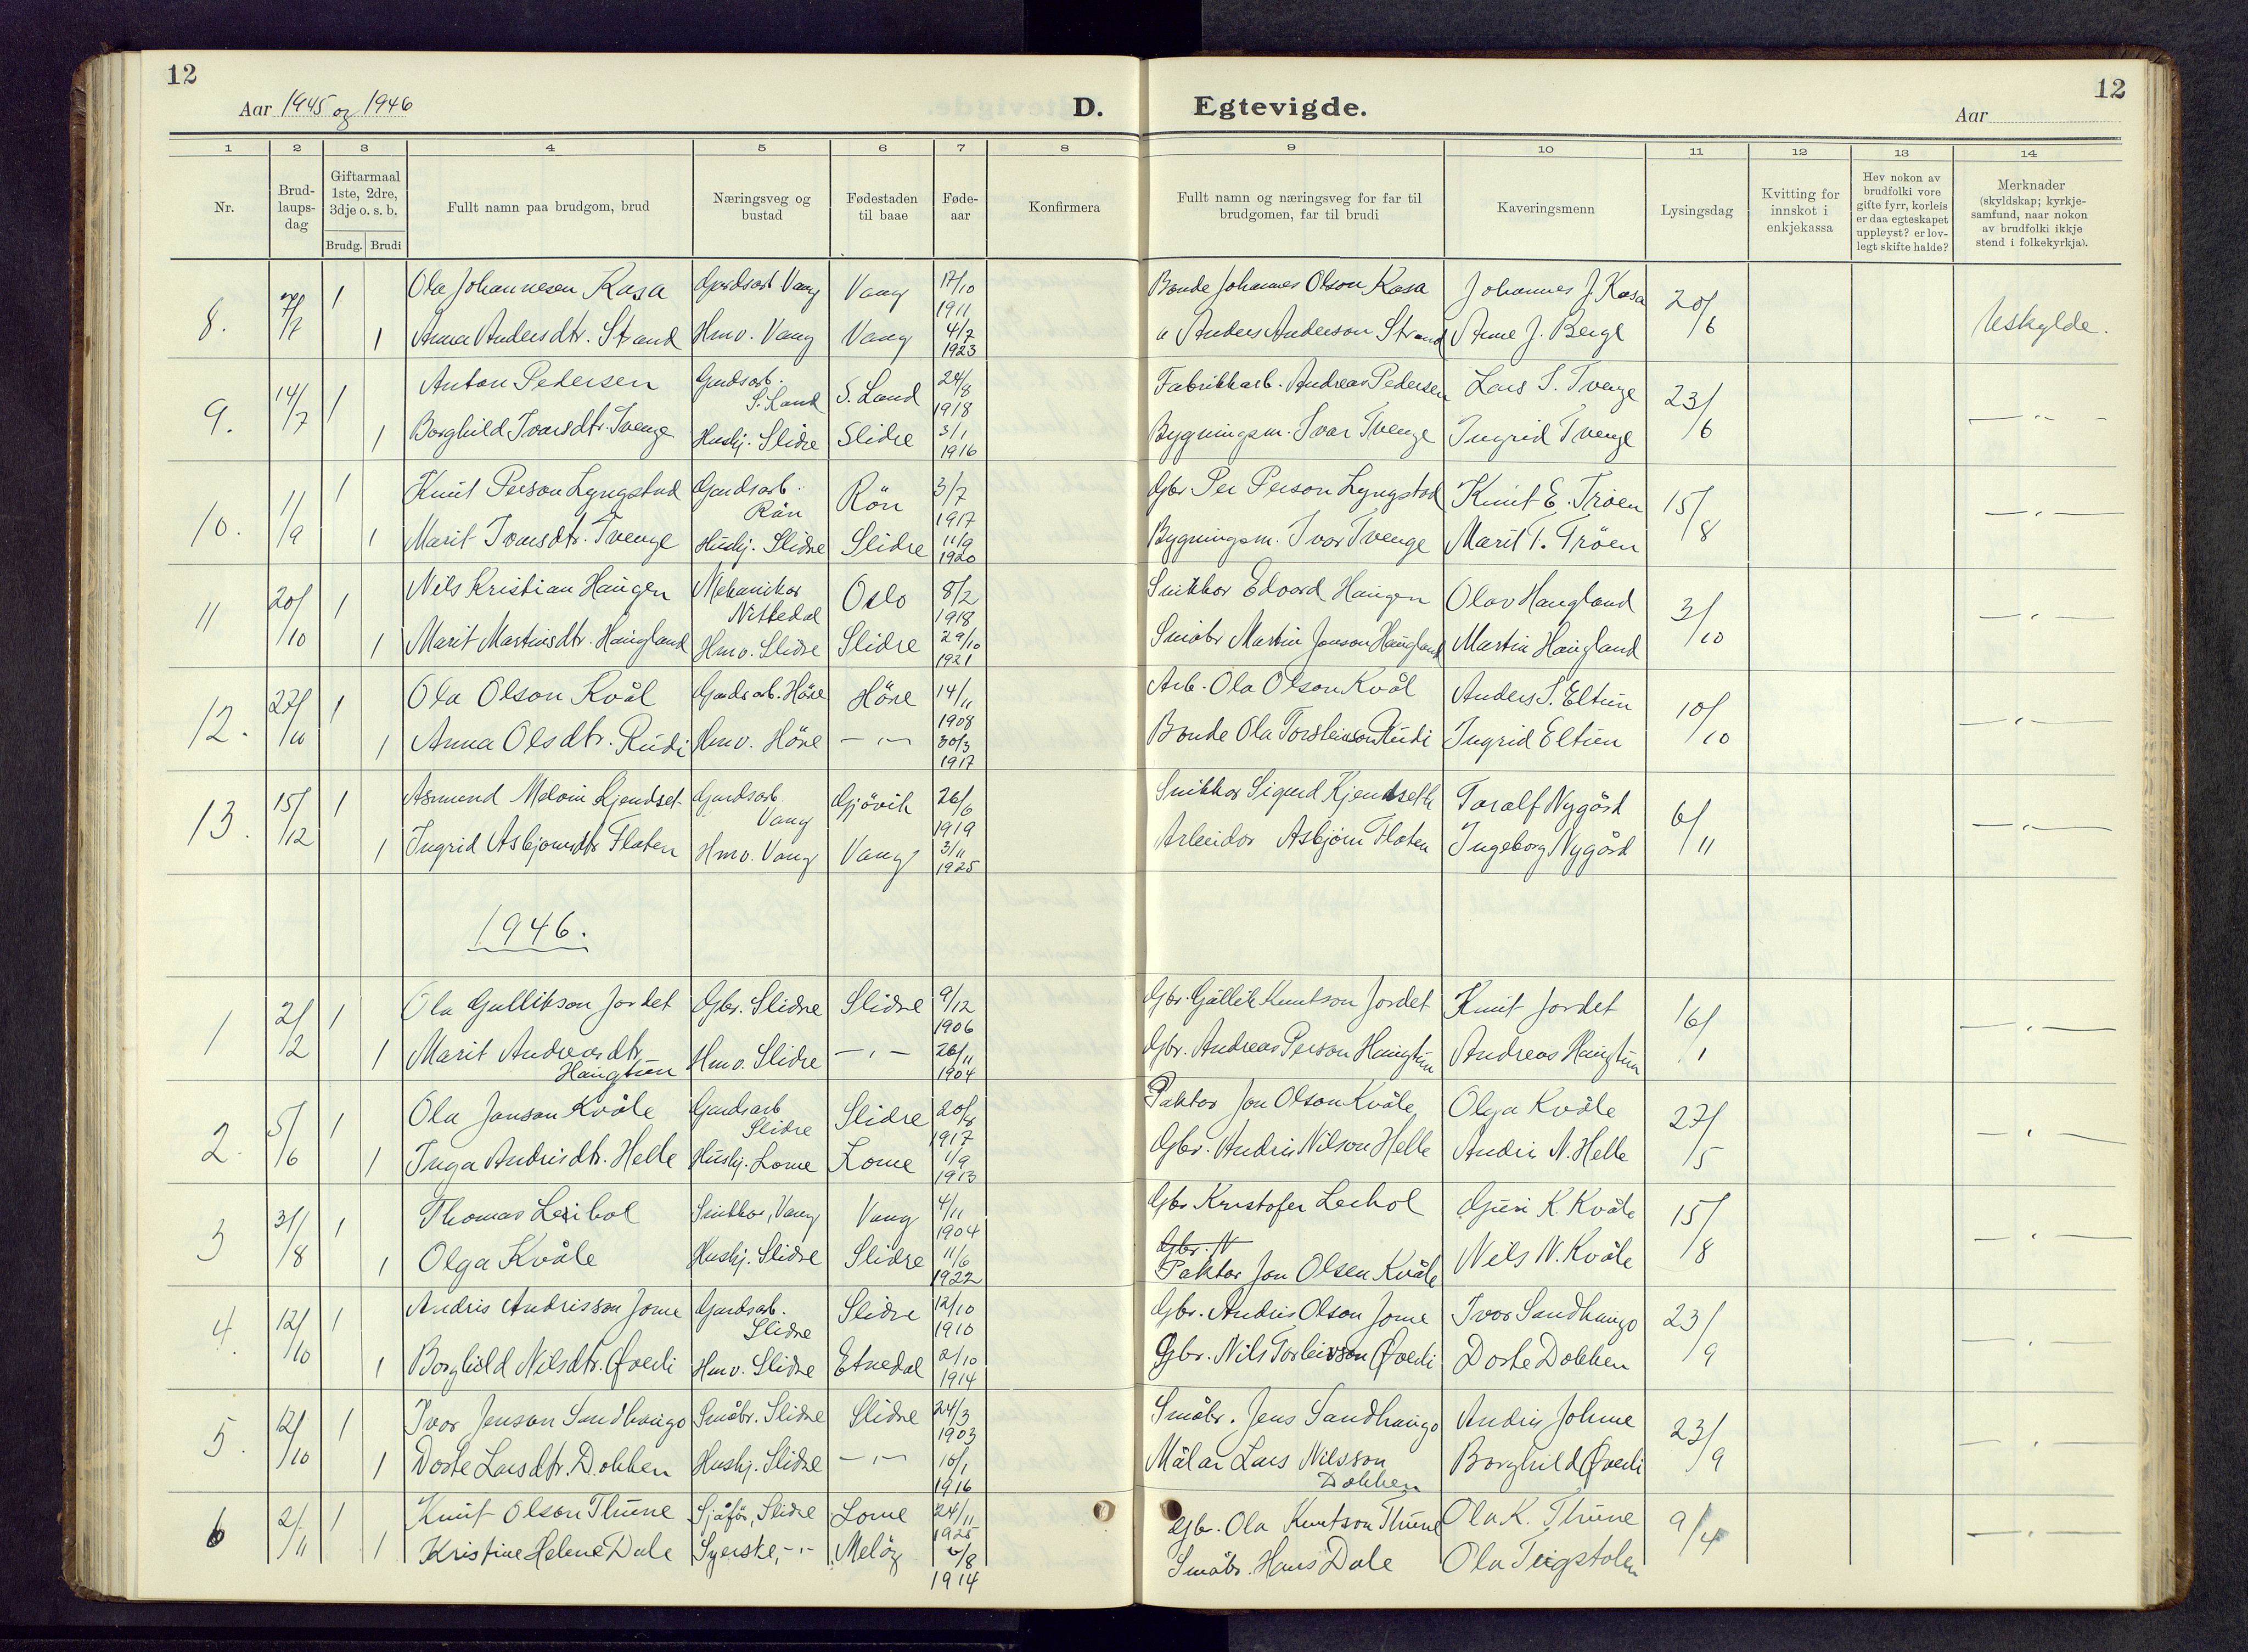 12
Aar 1945 og 1946
D.
Egtevigde.
Aar
12
1 2 3 4 5 6 7 8 9 10 11 12 13 14
Nr.
Brud-
laups-
dag
Giftarmaal
1ste, 2dre,
3dje o. s. b.
Brudg. Brudi
Fullt namn paa brudgom, brud
Næringsveg og
bustad
Fødestaden
til baae
Føde-
aar
Konfirmera
Fullt namn og næringsveg for far til
brudgomen, far til brudi
Kaveringsmenn
Lysingsdag
Kvitting for
innskot i
enkjekassa
Hev nokon av
brudfolki vore
gifte fyrr, korleis
er daa egteskapet
uppløyst? er lov-
legt skifte halde?
Merknader
(skyldskap; kyrkje-
samfund, naar nokon
av brudfolki ikkje
stend i folkekyrkja).
8. 7/7 1 Ola Johannesen Kasa Gardsarb Vang Vang 17/10 1911 Bonde Johannes Olson Kasa Johannes J. Kasa 20/6 Uskylde.
1 Anna Andersdtr. Strand Hmv. Vang Vang 4/7 1923 " Anders Anderson Strand Arne J. Berge
9. 14/7 1 Anton Pedersen Gardsarb. S. Land S. Land 24/8 1918 Fabrikkarb. Andreas Pedersen Lars I. Tvenge 23/6 — " —
1 Borghild Ivarsdtr. Tvenge Hushj. Slidre Slidre 3/1 1916 Bygningsm. Ivar Tvenge Ingrid Tvenge
10. 11/9 1 Knut Person Lyngstad Gardsarb. Røn Rön 3/7 1917 Gbr. Per Person Lyngstad Knut E. Trøen 15/8 — " —
1 Marit Ivarsdtr. Tvenge Hushj. Slidre Slidre 11/9 1920 Bygningsm. Ivar Tvenge Marit T. Tröen
11 20/10 1 Nils Kristian Haugen Mekanikar Nittedal Oslo 8/2 1918 Snikkar Edvard Haugen Olav Haugland 3/10 — " —
1 Marit Martinsdtr. Haugland Hmv. Slidre Slidre 29/10 1921 Småbr Martin Jonson Haugland Martin Haugland
12. 27/10 1 Ola Olson Kvål Gardsarb. Höre Höre 14/11 1908 Arb. Ola Olson Kvål Anders S. Eltun 10/10 — " —
1 Anna Olsdtr. Rudi Hmv. Höre — " — 30/3 1917 Bonde Ola Torsteinson Rudi Ingrid Eltun
13. 15/12 1 Asmund Melvin Kjendset Gardsarb. Vang Gjövik 26/6 1919 Snikkar Sigurd Kjendseth Toralf Nygård 6/11 — " —
1 Ingrid Asbjørnsdtr Flaten Hmv. Vang Vang 3/11 1925 Arbeidar Asbjørn Flaten Ingeborg Nygård
1946.
1 2/2 1 Ola Gullikson Jordet Gbr. Slidre Slidre 9/12 1906 Gbr. Gullik Knutson Jordet Knut Jordet 16/1 — " —
1 Marit Andreasdtr. Haugtun Hmv. Slidre — " — 26/11 1904 Gbr. Andreas Person Haugtun Andreas Haugtun
2. 5/6 1 Ola Jonson Kvåle Gardsarb Slidre Slidre 20/8 1917 Paktar Jon Olson Kvåle Olga Kvåle 27/5 — " —
1 Inga Andrisdtr. Helle Hushj. Lome Lome 1/9 1913 Gbr. Andris Nilson Helle Andris N. Helle
3 31/8 1 Thomas Leirhol Snikkar, Vang Vang 4/11 1904 Gbr Kristofer Leehol Guri K. Kvåle 15/8 — " —
Gbr. N
1 Olga Kvåle Hushj. Slidre Slidre 11/6 1922 Paktar Jon Olsen Kvåle Nils N. Kvåle
4. 12/10 1 Andris Andrisson Jome Gardsarb. Slidre Slidre 12/10 1910 Gbr. Andris Olson Jome Ivar Sandhaugo 23/9 — " —
1 Borghild Nilsdtr. Øverli Hmv. Slidre Etnedal 2/10 1914 Gbr. Nils Torleivson Øverli Dorte Dokken
5. 12/10 1 Ivar Jenson Sandhaugo Småbr. Slidre Slidre 24/3 1903 Småbr. Jens Sandhaugo Andris Johme 23/9 — " —
1 Dorte Larsdtr. Dokken Hushj. Slidre — " — 10/1 1916 Målar Lars Nilsson Dokken Borghild Øverli
6 2/11 1 Knut Olson Thune Sjåför, Slidre Lome 24/11 1925 Gbr. Ola Knutson Thune Ola K. Thune 9/4 — " —
1 Kristine Helene Dale Syerske, — " — Melöy /8 1914 Småbr. Hans Dale Ola Teigstolen